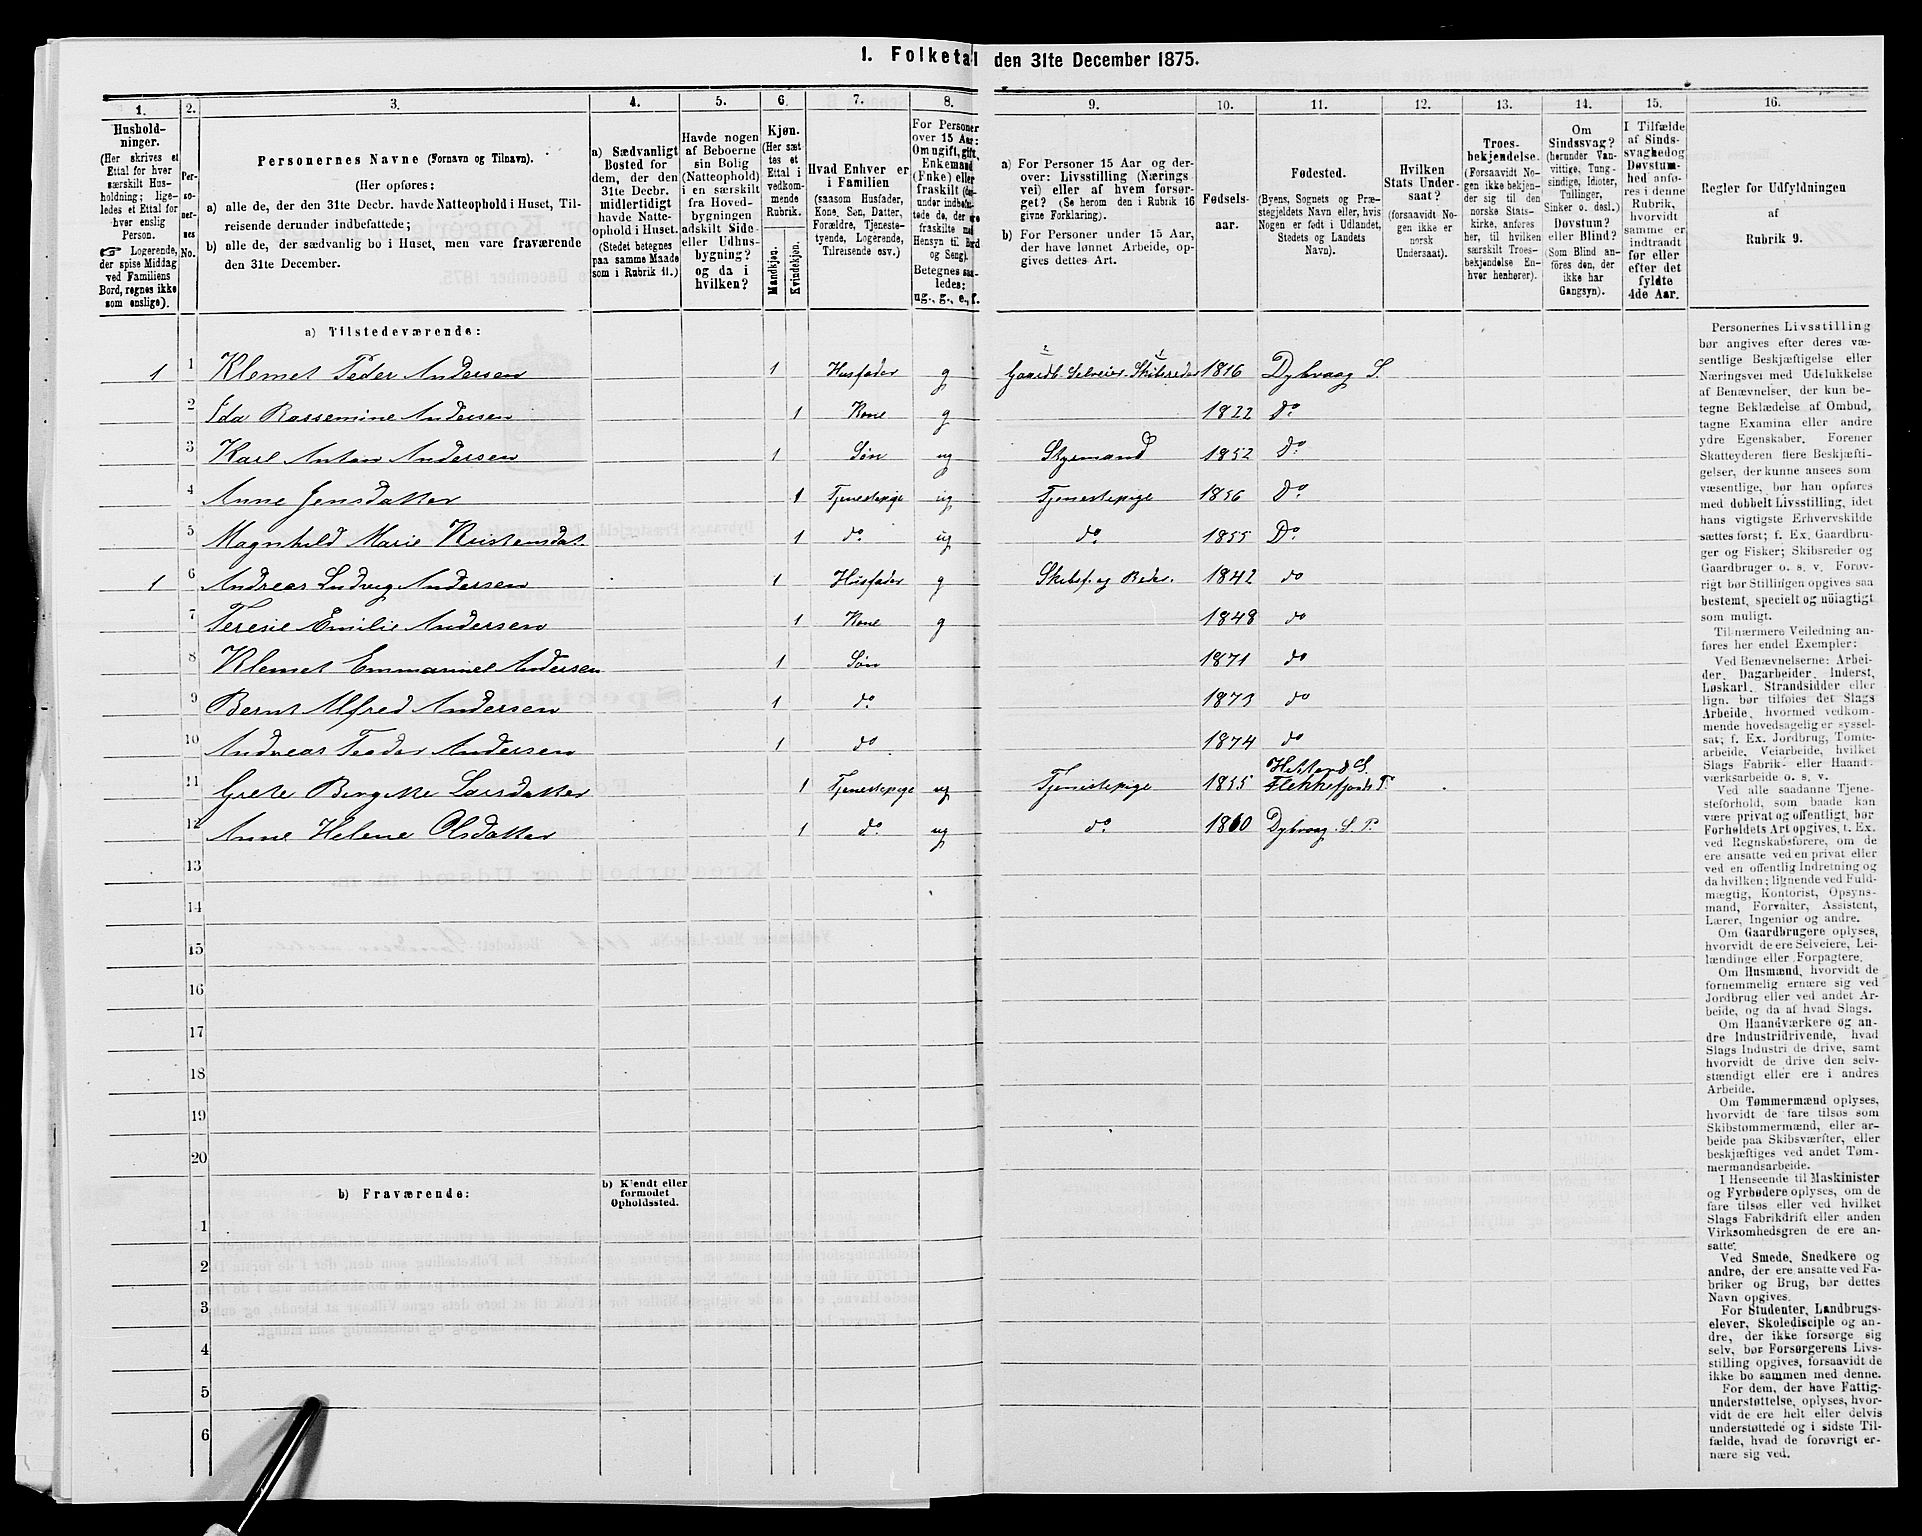 1. Folketal den 31te December 1875.
1. 2. 3. 4. 5. 6. 7. 8. 9. 10. 11. 12. 13. 14. 15. 16.
Hushold-
ninger.
(Her skrives et
Ettal for hver
særskilt Hus-
holdning; lige-
ledes et Ettal for
hver enslig
Person.
☞ Logerende,
der spise Middag
ved Familiens
Bord, regnes ikke
som enslige).
Per-
so-
ner-
nes
No.
Personernes Navne (Fornavn og Tilnavn).
(Her opføres:
a) alle de, der den 31te Decbr. havde Natteophold i Huset, Til-
reisende derunder indbefattede;
b) alle de, der sædvanlig bo i Huset, men vare fraværende
den 31te December.
a) Sædvanligt
Bosted for
dem, der den
31te Decbr.
midlertidigt
havde Natte-
ophold i Huset.
(Stedet betegnes
paa samme Maade
som i Rubrik 11.)
Havde nogen
af Beboerne
sin Bolig
(Natteophold)
i en særskilt
fra Hoved-
bygningen
adskilt Side-
eller Udhus-
bygning?
og da i
hvilken?
Kjøn.
(Her sæt-
tes et
Ettal i
vedkom-
mende
Rubrik.
Mandkjøn.
Kvindekjøn.
Hvad Enhver er
i Familien
(saasom Husfader,
Kone, Søn, Datter,
Forældre, Tjeneste-
tyende, Logerende,
Tilreisende osv.)
For Personer
over 15 Aar:
Om ugift, gift,
Enkemand
(Enke) eller
fraskilt (der-
under indbefat-
tede de, der ere
fraskilte med
Hensyn til Bord
og Seng).
Betegnes saa-
ledes:
ug., g., e., f.
a) For Personer 15 Aar og der-
over: Livsstilling (Nærings-
vei) eller af hvem forsør-
get? (Se herom den i Rubrik 16
givne Forklaring).
b) For Personer under 15 Aar,
der have lønnet Arbeide, op-
gives dettes Art.
Fødsels-
aar.
Fødested.
(Byens, Sognets og Præ-
stegjeldets Navn eller, hvis
Nogen er født i Udlandet,
Stedets og Landets
Navn).
Hvilken
Stats Under-
saat?
(forsaavidt No-
gen ikke er
norsk
Undersaat).
Troes-
bekjendelse.
(Forsaavidt No-
gen ikke bekjen-
der sig til den
norske Stats-
kirke, anføres
her, til hvilken
særskilt Troes-
bekjendelse En-
hver henhører).
Om
Sindssvag?
(herunder Van-
vittige, Tung-
sindige, Idioter,
Tullinger,
Sinker o. desl.)
Døvstum?
eller Blind?
(Som Blind an-
føres den, der
ikke har
Gangsyn).
I Tilfælde
af Sinds-
svaghed og
Døvstum-
hed anfø-
res i denne
Rubrik,
hvorvidt
samme er
indtraadt
før eller
efter det
fyldte
4de Aar.
Regler for Udfyldningen
af
Rubrik 9.
a) Tilstedeværende:
1 1 Klemet Peder Andersen 1 Husfader g Gaardb. Selveier Skibsreder 1816 Dybvaag S.
2 Ida Rassemine Andersen 1 Kone g 1822 do
3 Karl Anton Andersen 1 Søn ug Styrmand 1852 Do
4 Anne Jensdatter 1 Tjenestepige ug Tjenestepige 1856 Do
5 Magnhild Marie Kristensdat. 1 do ug do 1855 Do
1 6 Andreas Ludvig Andersen 1 Husfader g Skibsf. og Reder. 1842 do
7 Teresie Emilie Andersen 1 Kone g 1848 do
8 Klemet Emmanuel Andersen 1 Søn 1871 do
9 Bernt Alfred Andersen 1 do 1873 do
10 Andreas Teodor Andersen 1 do 1874 do
11 Grete Birgitte Larsdatter 1 Tjenestepige ug Tjenestepige 1855 Flekkefjords P.
12 Anne Helene Olsdatter 1 do ug do 1860 Dybvaag S. P.
13
14
15
16
17
18
19
20
b) Fraværende:
b) Kjendt eller
formodet
Opholdssted.
1
2
3
4
5
6
Personernes Livsstilling
bør angives efter deres væ-
sentlige Beskjæftigelse eller
Næringsvei med Udelukkelse
af Benævnelser, der kun be-
tegne Beklædelse af Ombud,
tagne Examina eller andre
ydre Egenskaber. Forener
Skatteyderen flere Beskjæfti-
gelser, der kunne ansees som
væsentlige, bør han opføres
med dobbelt Livsstilling, idet
hans vigtigste Erhvervskilde
sættes først; f. Ex. Gaardbru-
ger og Fisker; Skibsreder og
Gaardbruger o. s. v. Forøv-
rigt bør Stillingen opgives saa
bestemt, specielt og nöiagtigt
som muligt.
Til nærmere Veiledning an-
føres her endel Exempler:
Ved Benævnelserne: Arbei-
der, Dagarbeider, Inderst,
Løskarl, Strandsidder eller
lign. bør tilføies det Slags
Arbeide, hvormed vedkom-
mende hovedsagelig er syssel-
sat; f. Ex. Jordbrug, Tomte-
arbeide, Veiarbeide, hvilket
Slags Fabrik- eller Haand-
værksarbeide o. s. v.
Ved alle saadanne Tjene-
steforhold, som baade kan
være privat og offentligt, bør
Forholdets Art opgives, t. Ex.
ved Regnskabsførere, om de
ere ansatte ved en privat eller
ved en offentlig Indretning og
da hvilken; lignende ved Fuld-
mægtig, Kontorist, Opsyns-
mand, Forvalter, Assistent,
Lærer, Ingeniør og andre.
Om Gaardbrugere oplyses,
hvorvidt de ere Selveiere, Lei-
lændinge eller Forpagtere.
Om Husmænd, hvorvidt de
fornemmelig ernære sig ved
Jordbrug eller ved andet Ar-
beide, og da af hvad Slags.
Om Haandværkere og an-
dre Industridrivende, hvad
Slags Industri de drive, samt
hvorvidt de drive den selv-
stændigt eller ere i andres
Arbeide.
Om Tømmermænd oplyses,
hvorvidt de fare tilsøs som
Skibstømmermænd, eller ar-
beide paa Skibsværfter, eller
beskjæftiges ved andet Tøm-
mermandsarbeide.
I Henseende til Maskinister
og Fyrbødere oplyses, om de
fare tilsøs eller ved hvilket
Slags Fabrikdrift eller anden
Virksomhedsgren de ere an-
satte.
Ved Smede, Snedkere og
andre, der ere ansatte ved Fa-
briker og Brug, bør dettes
Navn opgives.
For Studenter, Landbrugs-
elever, Skoledisciple og an-
dre, der ikke forsørge sig
selv, bør Forsørgerens Livs-
stilling opgives, forsaavidt de
ikke bo sammen med denne.
For dem, der have Fattig-
understøttelse, oplyses, hvor-
vidt de ere helt eller delvis
understøttede og i sidste Til-
fælde, hvad de forøvrigt er-
nære sig ved.